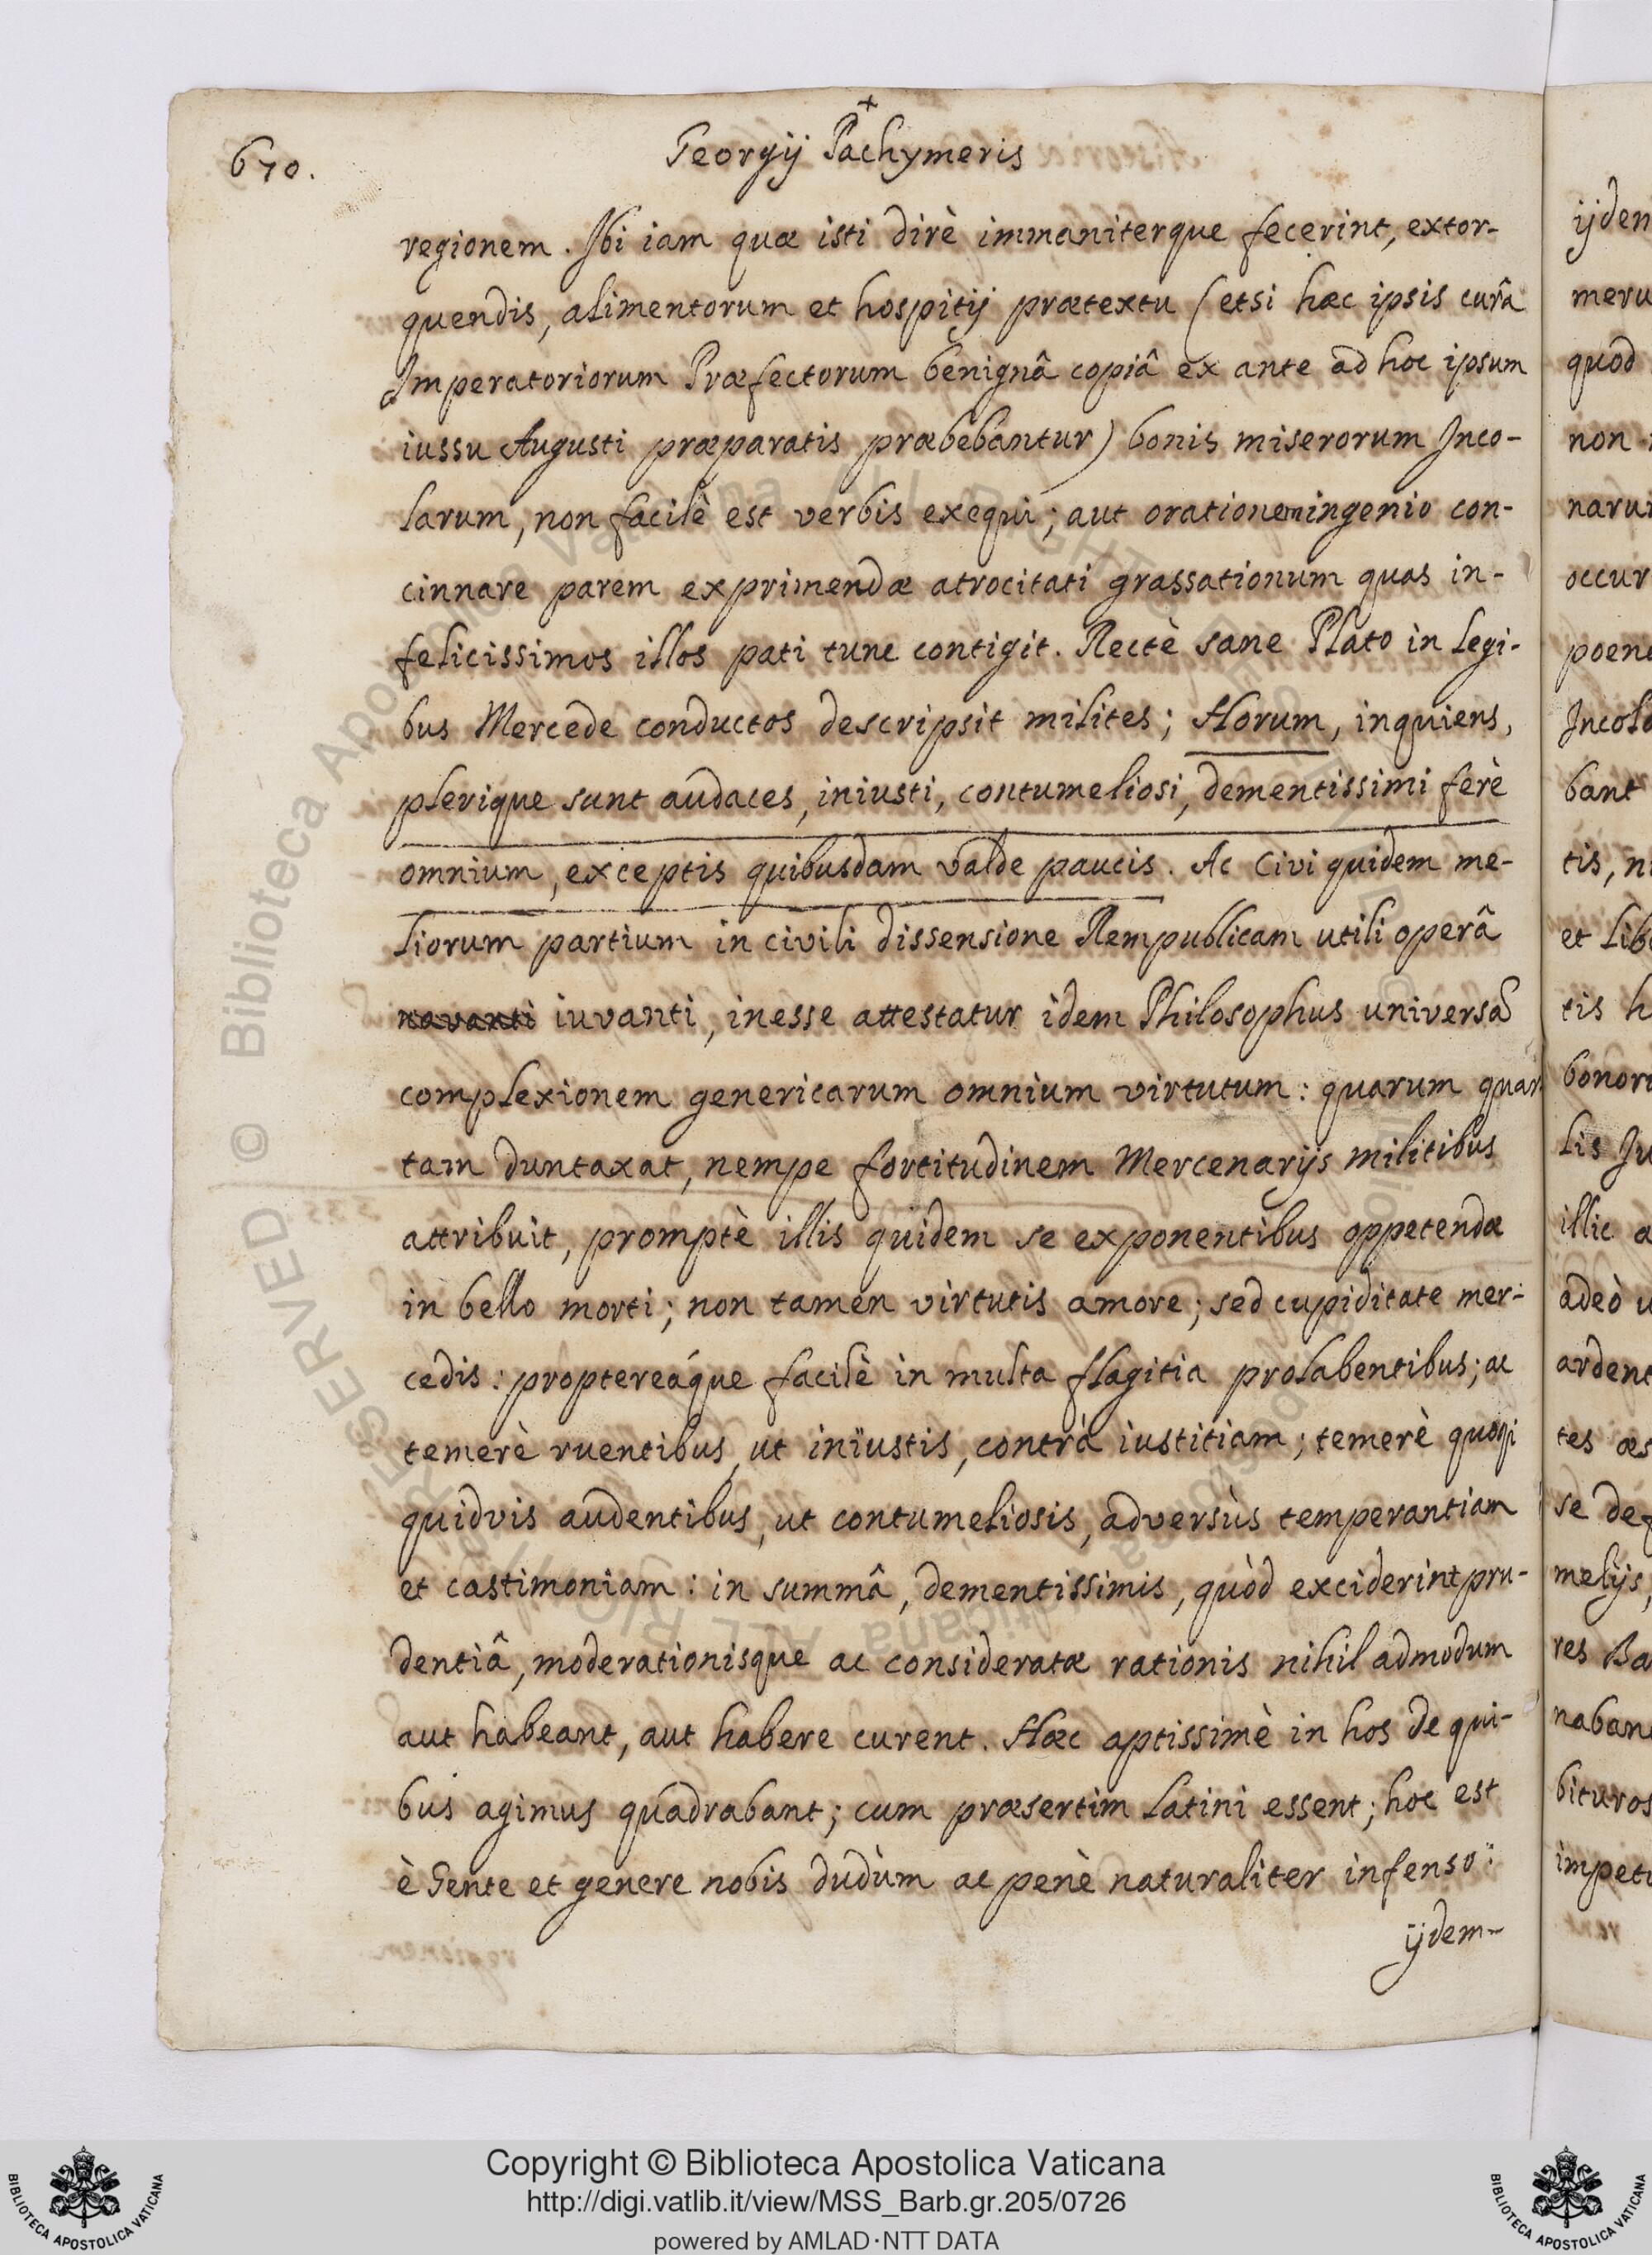 670.
+
Georgij Pachymeris
regionem. Ibi iam quæ isti dirè immaniterque fecerint, extor-
quendis, alimentorum et hospitij prætextu (etsi hæc ipsis curâ
Imperatoriorum Præfectorum benignâ copiâ ex ante ad hoc ipsum
iussu Augusti præparatis præbebantur) bonis miserorum Inco-
larum, non facilè est verbis exequi; aut orationem ingenio con-
cinnare parem exprimendæ atrocitati grassationum quas in-
felicissimos illos pati tunc contigit. Rectè sane Plato in legi-
bus Mercede conductos descripsit milites; Horum, inquiens,
plerique sunt audaces, iniusti, contumeliosi, dementissimi ferè
omnium, exceptis quibusdam valde paucis. Ac Civi quidem me-
liorum partium in civili dissensione Rempublicam utili operâ
navanti iuvanti, inesse attestatur idem Philosophus universã
complexionem genericarum omnium virtutum: quarum quar
tam duntaxat, nempe fortitudinem Mercenarijs militibus
attribuit, promptè illis quidem se exponentibus oppetendæ
in bello morti; non tamen virtutis amore; sed cupiditate mer-
cedis: proptereáque facilè in multa flagitia prolabentibus; ac
temerè ruentibus, ut iniustis, contrà iustitiam; temerè
quidvis audentibus, ut contumeliosis, adversùs temperantiam
et castimoniam: in summâ, dementissimis, quòd exciderint pru-
dentiâ, moderationisque ac consideratæ rationis nihil admodum
aut habeant, aut habere curent. Hæc aptissimè in hos de qui-
bus agimus quadrabant; cum præsertim Latini essent; hoc est
è Gente et genere nobis dudùm ac penè naturaliter infenso:
ijdem-
ijden
meru
quod
non
narui
occur
poen
Incola
bant
tis,
et lib
tis h
bonor
lis Ju
illic a
adeò u
ardent
tes æs
se def
melijs,
res Ba
naban
bituros
impetu
© Biblioteca Apostolica Vaticana ALL RIGHTS RESERVED
Copyright © Biblioteca Apostolica Vaticana
http://digi.vatlib.it/view/MSS_Barb.gr.205/0726
powered by AMLAD·NTT DATA
BIBLIOTECA APOSTOLICA VATICANA
BIBLIOTECA APOSTOLICA VATICANA